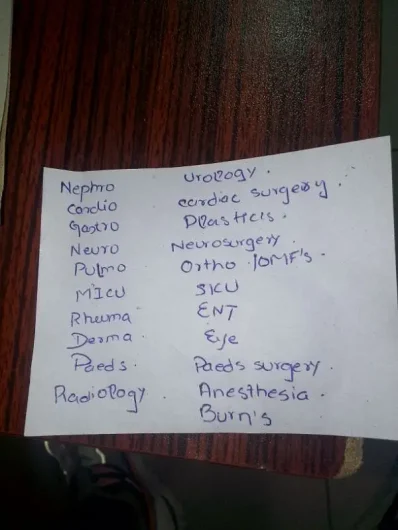 Nephro Urology.
Cardio cardiac surgery.
Gastro Plastics.
Neuro Neurosurgery.
Pulmo Ortho /OMF's.
MICU SICU
Rheuma ENT
Derma. Eye
Paeds. Paeds surgery.
Radiology. Anesthesia.
Burn's